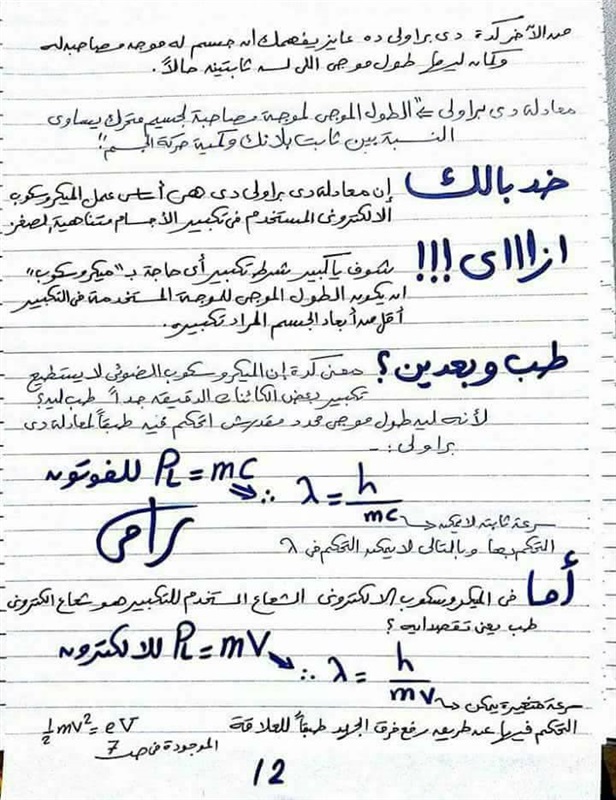 من الآخر كدة دى براولى ده عايز يفهمك ان جسم له موجه مصاحبه له
وكمان ليها طول موجى اللى لسه ثابتينه حالاً.
معادله دى براولى ⇐ "الطول الموجى لموجة مصاحبة لجسيم متحرك يساوى
النسبة بين ثابت بلانك وكمية حركة الجسم".
خد بالك إن معادله دى براولى دى هى أساس عمل الميكروسكوب
الالكترونى المستخدم فى تكبير الأجسام متناهية الصغر
ازاااى !!! شوف يا كبير شرط تكبير أى حاجة بـ "ميكروسكوب"
ان يكون الطول الموجى للموجة المستخدمة فى التكبير
أقل من أبعاد الجسم المراد تكبيره.
طب وبعدين ؟ معنى كدة إن الميكروسكوب الضوئى لا يستطيع
تكبير بعض الكائنات الدقيقه جداً طب ليه؟
لأنه ليه طول موجى محدد مقدرش اتحكم فيه طبقاً لمعادله دى
براولى :-
للفوتون PL = mC ∴ λ = h / mc
سرعة ثابته لا يمكن
التحكم بها وبالتالى لا يمكن التحكم فى λ
أما فى الميكروسكوب الالكترونى الشعاع المستخدم للتكبير هو شعاع الكترونى
طب يعنى تقصد ايه ؟
للالكترون PL = mV ∴ λ = h / mv
سرعة متغيرة يمكن
التحكم فيها عن طريق رفع فرق الجهد طبقاً للعلاقة ½mv² = eV
الموجودة فى صـ 7
12